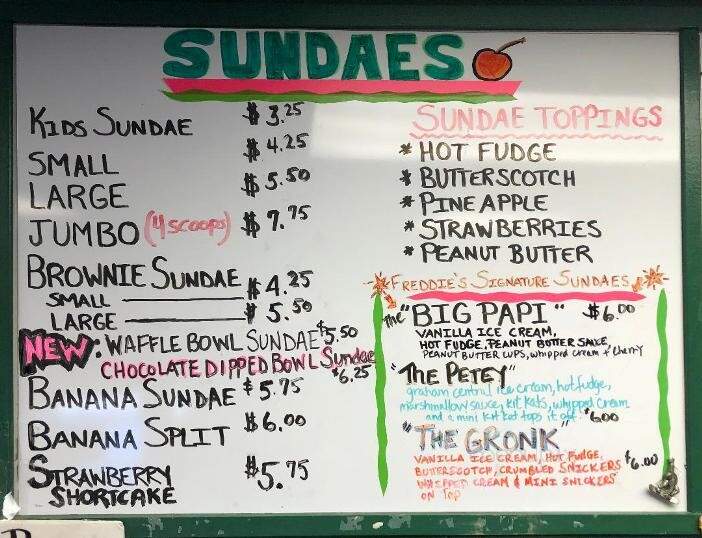 SUNDAES
KIDS SUNDAE $3.25
SMALL $4.25
LARGE $5.50
JUMBO (4 SCOOPS) $7.75
BROWNIE SUNDAE
SMALL $4.25
LARGE $5.50
NEW: WAFFLE BOWL SUNDAE $5.50
CHOCOLATE DIPPED BOWL Sundae $6.25
BANANA SUNDAE $5.75
BANANA SPLIT $6.00
STRAWBERRY
SHORTCAKE $5.75
SUNDAE TOPPINGS
* HOT FUDGE
* BUTTERSCOTCH
* PINEAPPLE
* STRAWBERRIES
* PEANUT BUTTER
FREDDIE'S SIGNATURE SUNDAES
The "BIG PAPI" $6.00
VANILLA ICE CREAM,
HOT FUDGE, PEANUT BUTTER SAUCE,
PEANUT BUTTER CUPS, whipped cream + cherry
"THE PETEY"
graham central ice cream, hot fudge,
marshmallow sauce, kit kats, whipped cream
and a mini kit kat tops it off. $6.00
"THE GRONK"
VANILLA ICE CREAM, HOT FUDGE, $6.00
BUTTERSCOTCH, CRUMBLED SNICKERS
WHIPPED CREAM & MINI SNICKERS
ON TOP